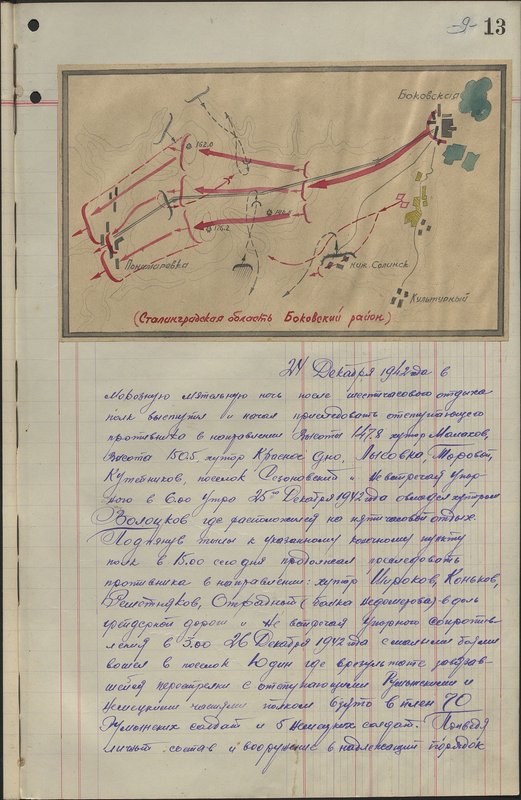 -9- 13
Боковская
162.0
176.2
Пономаревка
ниж. Солинск
Культурный
(Сталинградская область Боковский район)
24 Декабря 1942 года в
морозную мятельную ночь после шестичасового отдыха
полк выступил и начал преследовать отступающего
противника в направлении Высоты 147.8 хутор Малахов,
Высота 150.5, хутор Красное Дно, Лысовка, Моровой,
поселок и не встречая упор-
ного в 6.00 утра 25го Декабря 1942 года овладел хутором
Волоцков где расположился на пятичасовой отдых.
Подтянув тылы к указанному конечному пункту
полк в 15.00 сего дня продолжал последовать
противника в направлении: хутор Широков, Коньков,
Решетняков, Отрадной (балка в доль
грейдерной дороги и не встречая упорного сопротив-
ления в 3.00 26 Декабря 1942 года с малыми боями
вошел в поселок Юдин где в результате завязав-
шейся перестрелки с отступающими Румынскими и
Немецкими частями полком взято в плен 70
Румынских солдат и 6 Немецких солдат. Приведя
личный состав и вооружение в надлежащий порядок